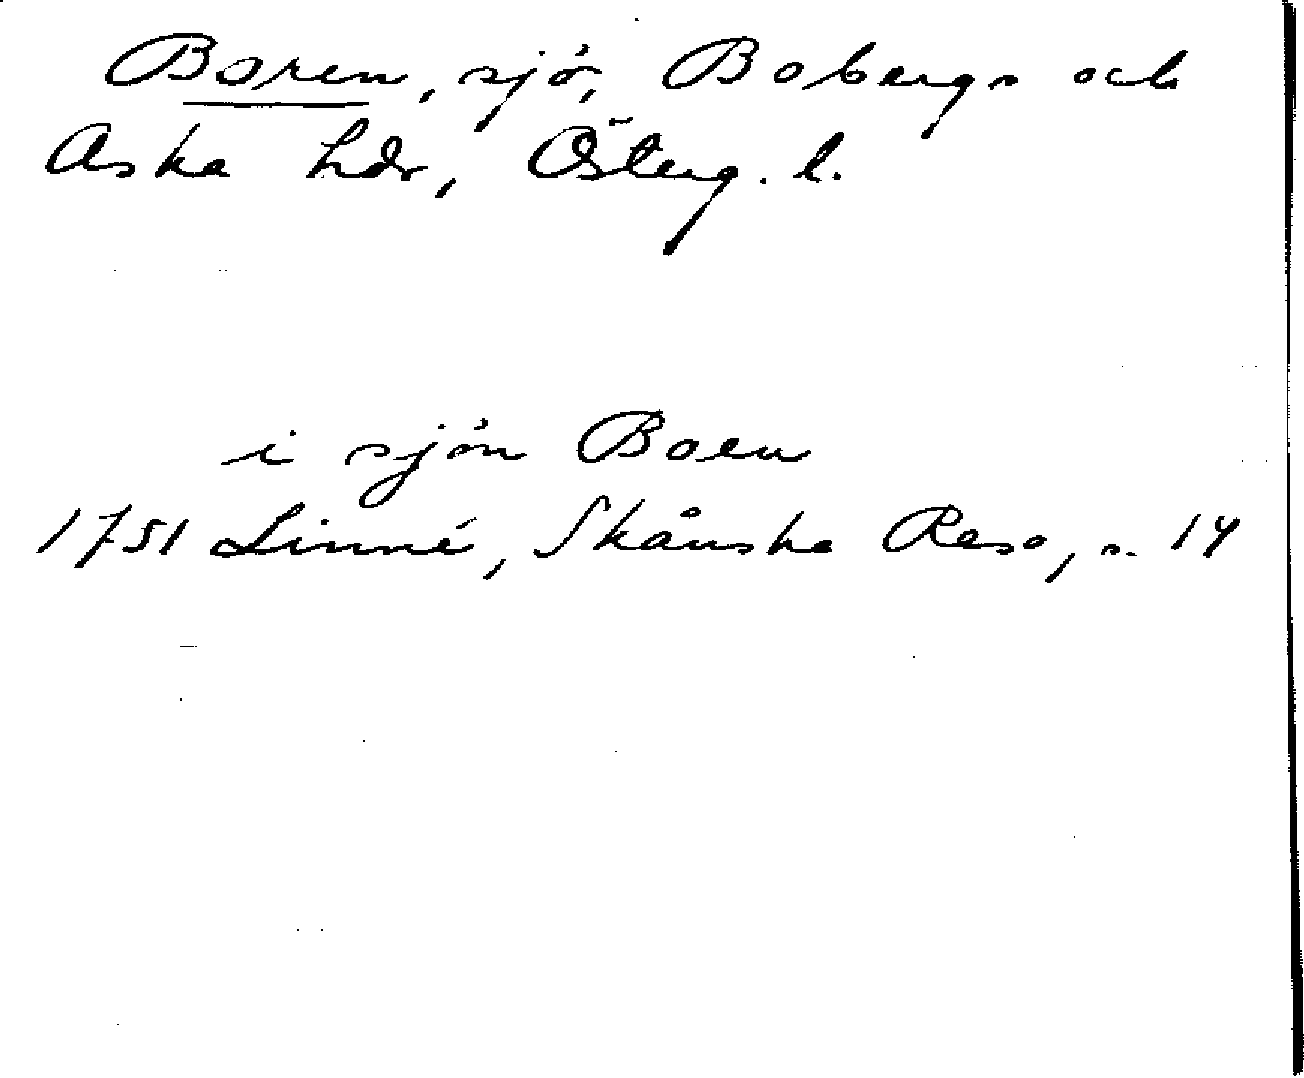 Boren, sjö, Bobergs och
Aska hdr, Österg. l.
i sjön Boen
1751 Linné, Skånska Resa, s. 14